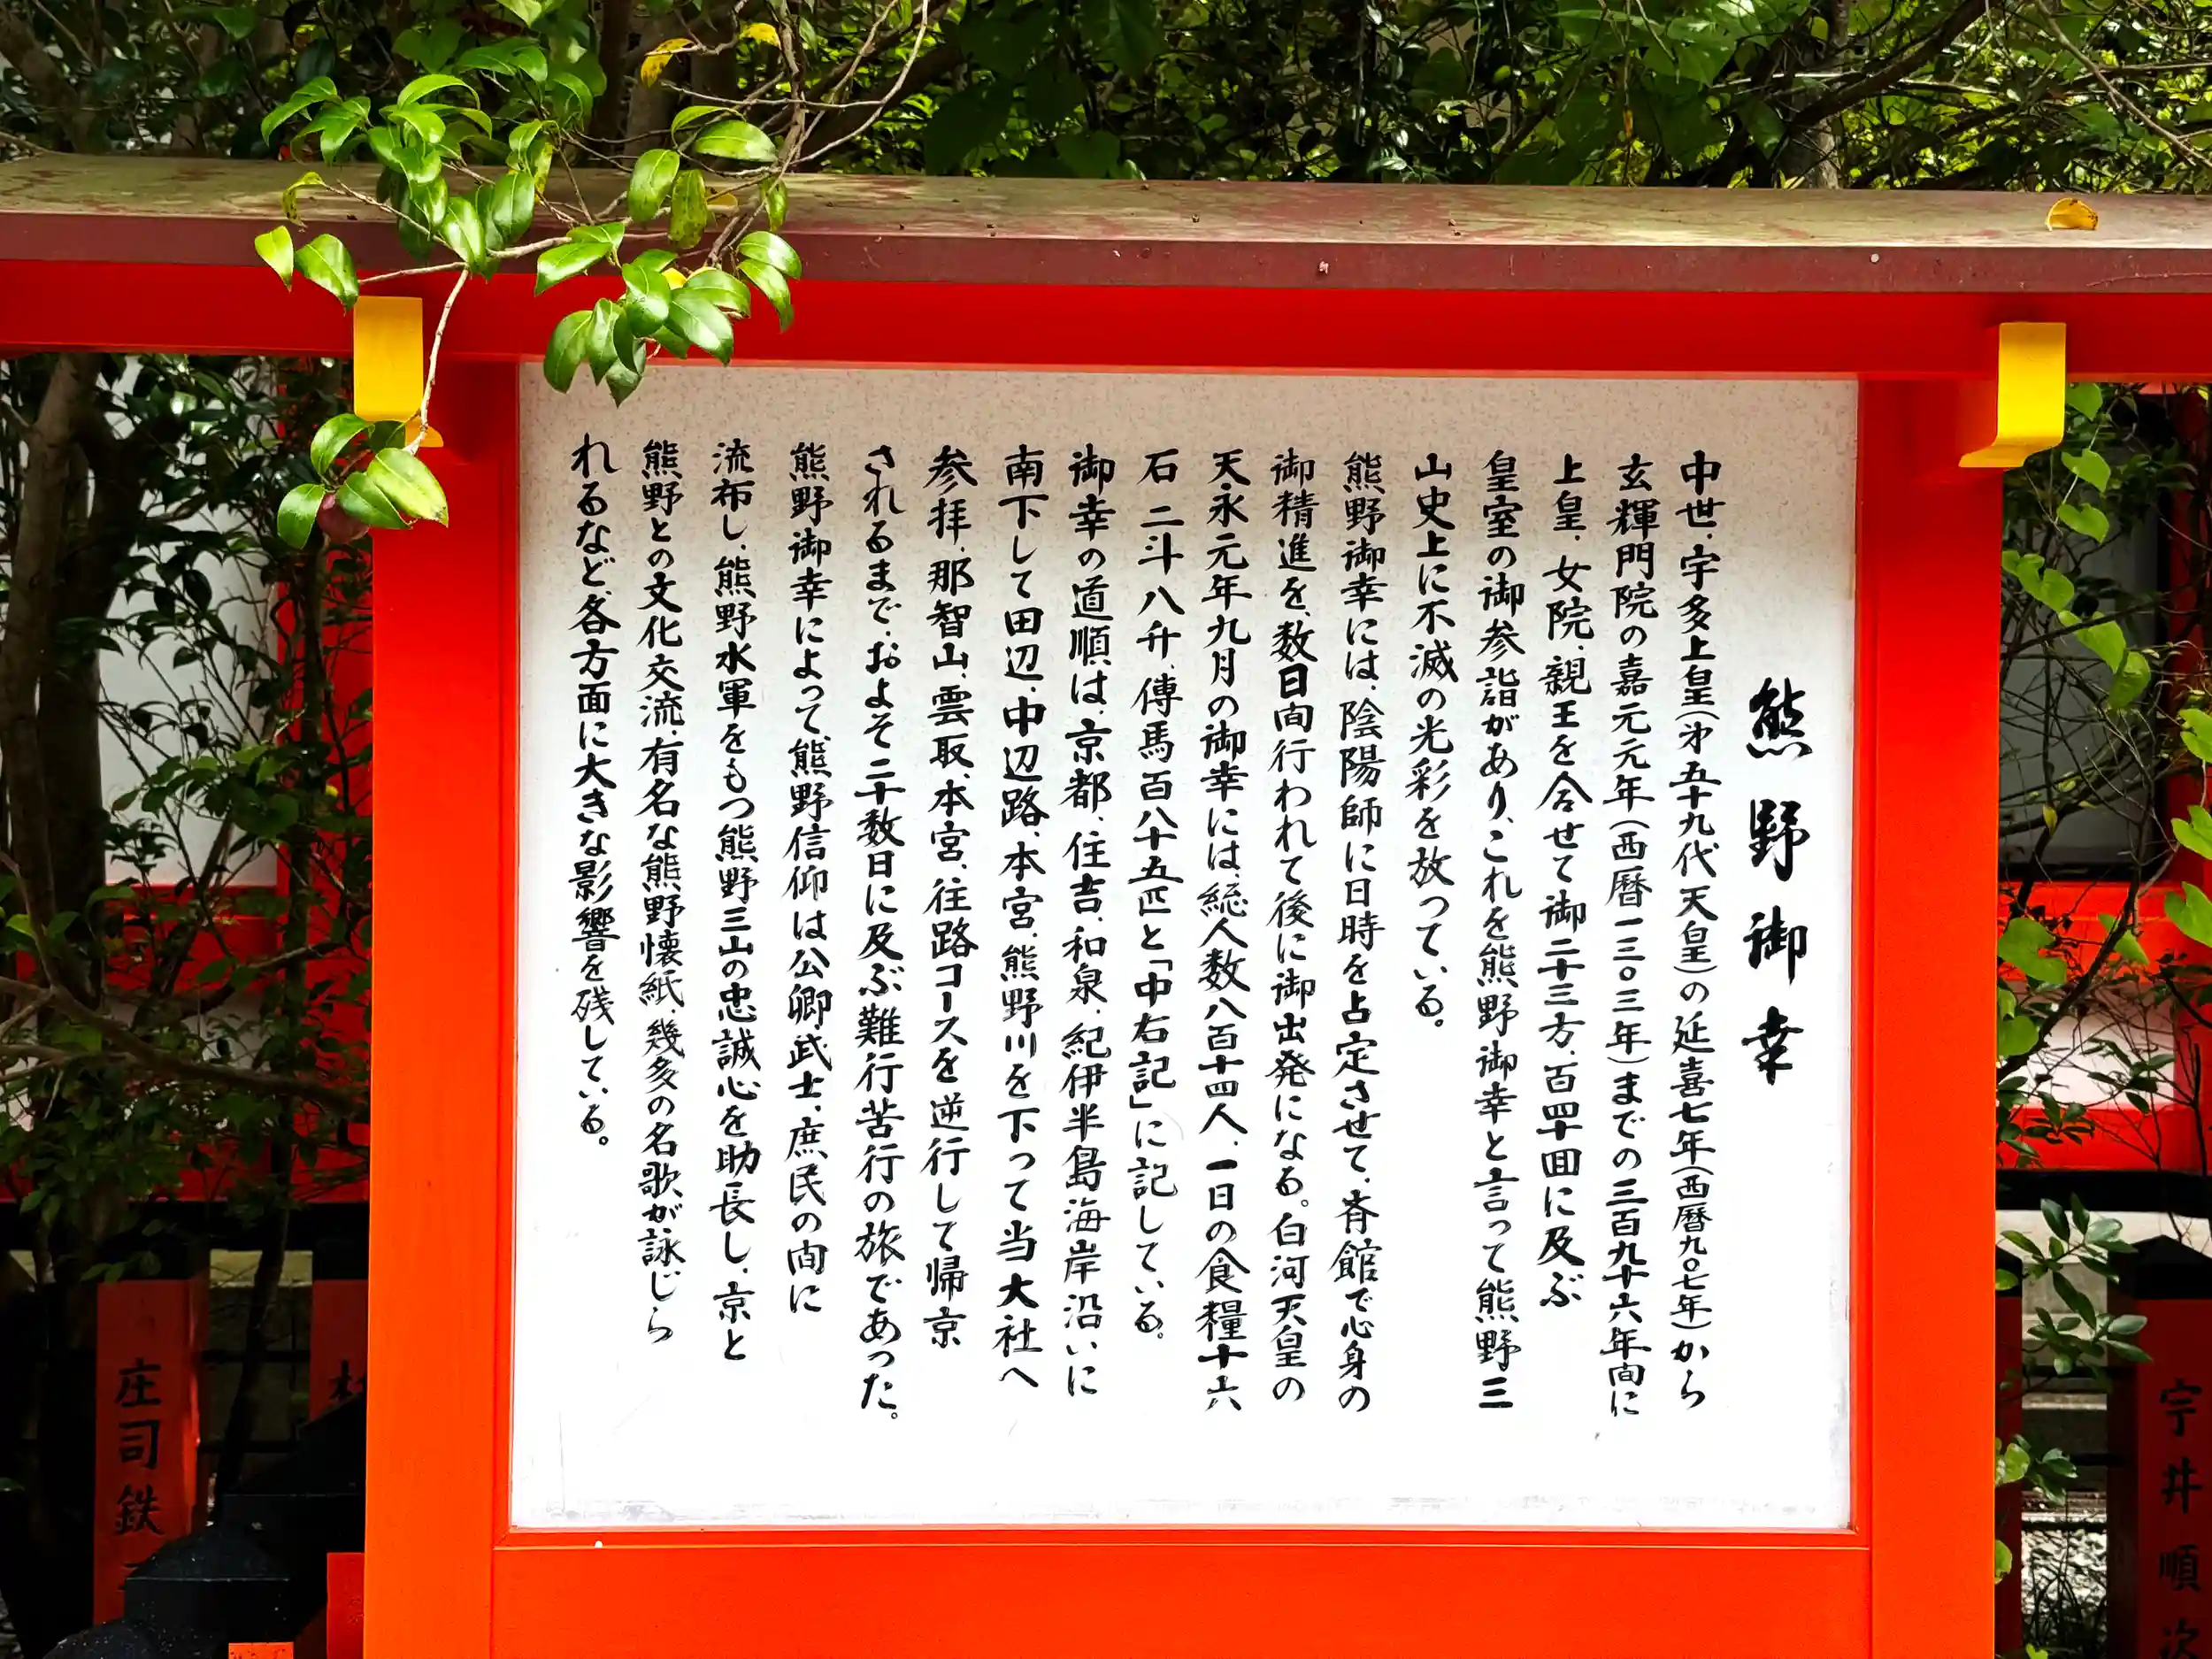 熊野御幸
中世、宇多上皇(㐧五十九代天皇)の延喜七年(西暦九〇七年)から
玄輝門院の嘉元元年(西暦一三〇三年)までの三百九十六年間に
上皇、女院、親王を合せて御二十三方、百四十回に及ぶ
皇室の御参詣があり、これを熊野御幸と言って熊野三
山史上に不滅の光彩を放っている。
熊野御幸には、陰陽師に日時を占定させて、斉館で心身の
御精進を、数日間行われて後に御出発になる。白河天皇の
天永元年九月の御幸には、総人数八百十四人、一日の食糧十六
石二斗八升、傳馬百八十五匹と「中右記」に記している。
御幸の道順は、京都、住吉、和泉、紀伊半島海岸沿いに
南下して田辺、中辺路、本宮、熊野川を下って当大社へ
参拝、那智山、雲取、本宮、往路コースを逆行して帰京
されるまで、およそ二十数日に及ぶ難行苦行の旅であった。
熊野御幸によって、熊野信仰は公卿、武士、庶民の間に
流布し、熊野水軍をもつ熊野三山の忠誠心を助長し、京と
熊野との文化交流、有名な熊野懐紙、幾多の名歌が詠じら
れるなど、各方面に大きな影響を残している。
庄司鉄
宇井順次